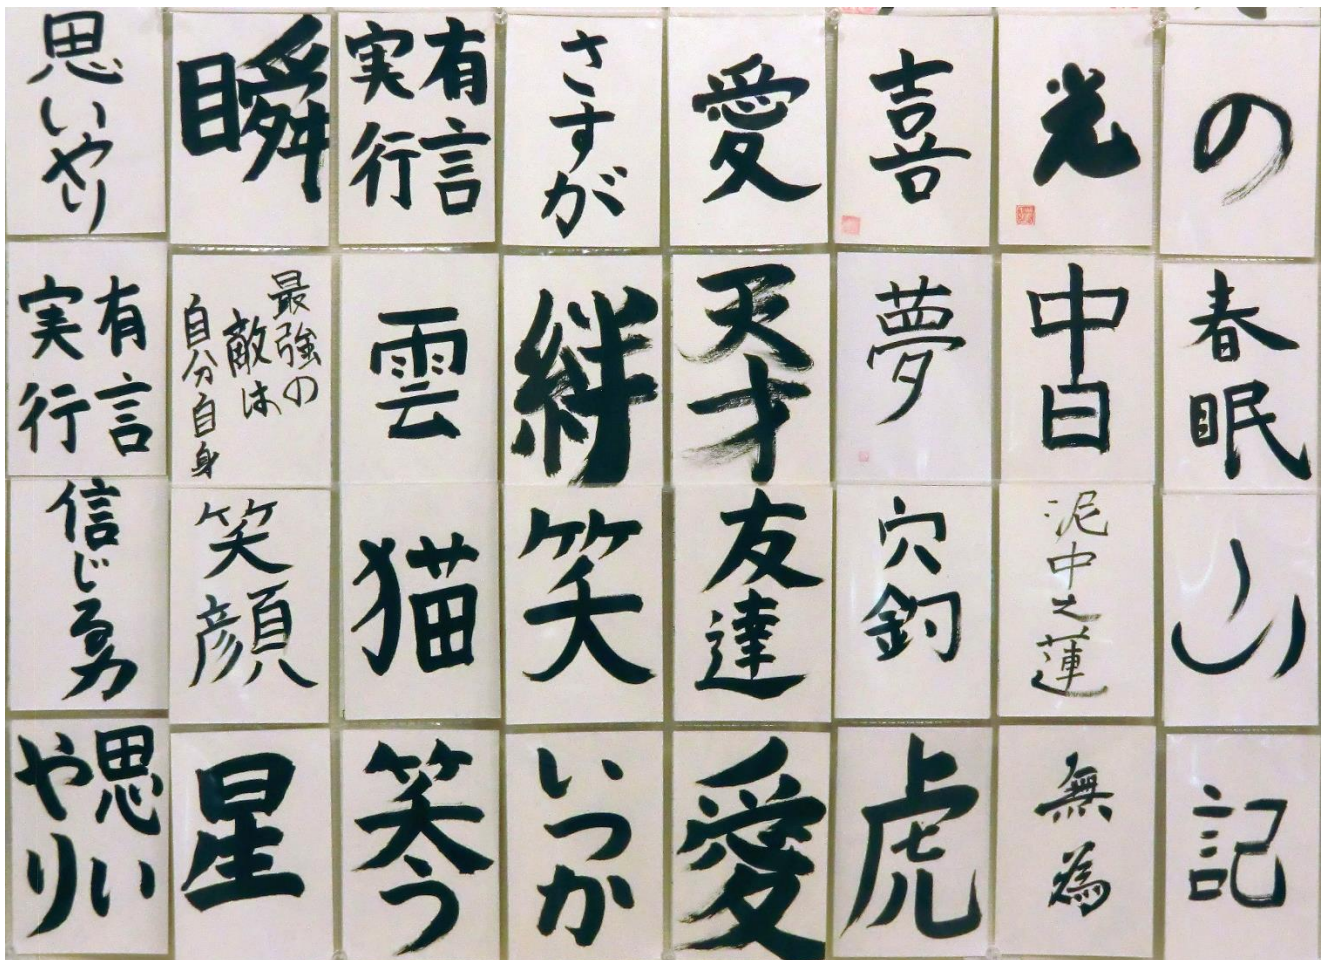 思いやり
瞬
有言
実行
さすが
愛
喜
光
の
有言
実行
最強の
敵は
自分自身
雲
絆
天才
夢
中日
春眠
信じる勇
笑顔
猫
笑
友達
穴釣
泥中之蓮
山
思い
やり
星
笑う
いつか
愛
虎
無為
記